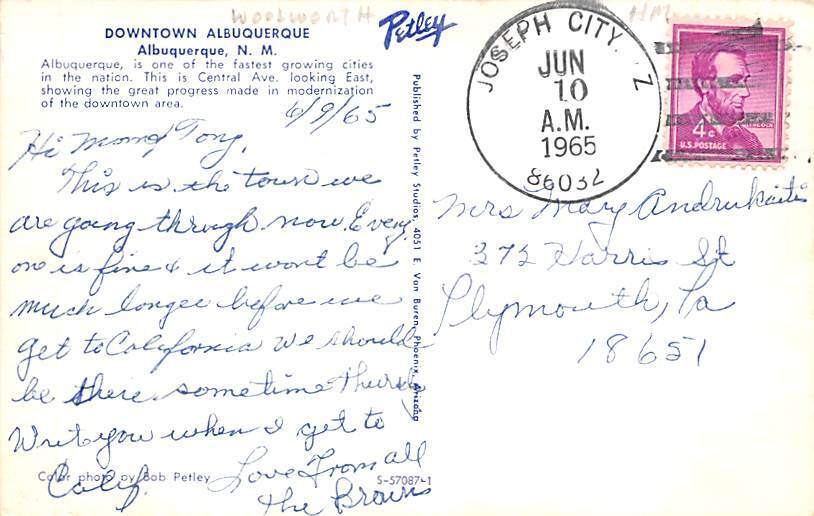 WOOLWORTH
NM
DOWNTOWN ALBUQUERQUE
Albuquerque, N. M.
Albuquerque, is one of the fastest growing cities
in the nation. This is Central Ave. looking East,
showing the great progress made in modernization
of the downtown area.
Petley
6/9/65
Hi Mom & Tony,
This is the town we
are going through now. Every
one is fine & it wont be
much longer before we
get to California We should
be there sometime Thursday
Writ you when I get to
Calif.
Love From all
the Browns
Color photo by Bob Petley
S-57087-1
Published by Petley Studios, 4051 E. Van Buren, Phoenix, Arizona
JOSEPH CITY, Z
JUN
10
A.M.
1965
86032
4c
U.S. POSTAGE
LINCOLN
Mrs Mary Andrukaitis
372 Harris St
Plymouth, Pa
18651